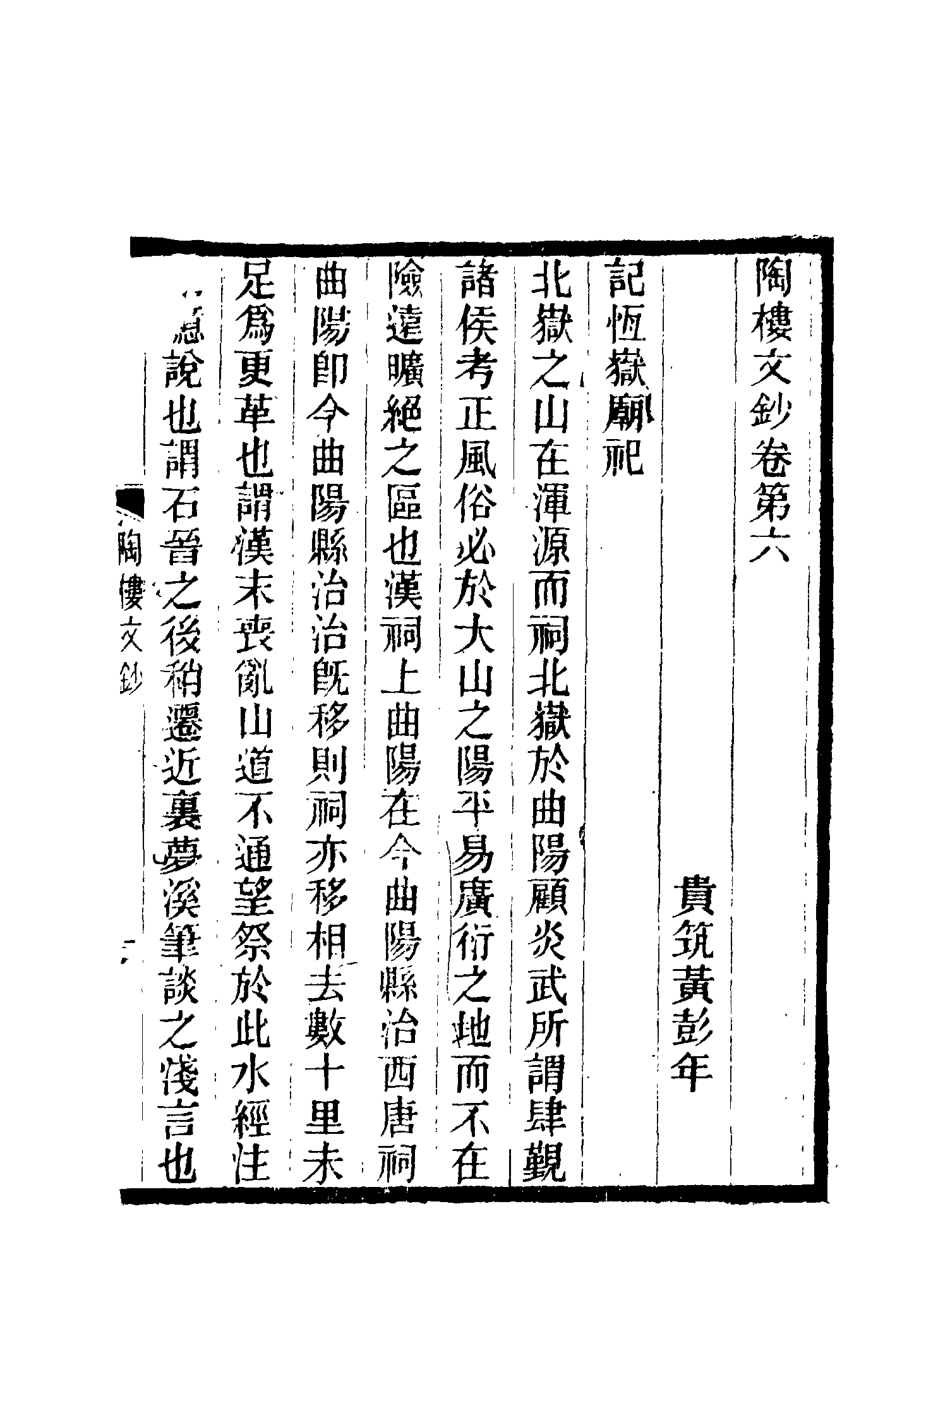 陶樓文鈔卷第六
貴筑黃彭年
記恆嶽廟祀
北嶽之山在渾源而祠北嶽於曲陽顧炎武所謂肆覲
諸侯考正風俗必於大山之陽平易廣衍之地而不在
險遠曠絕之區也漢祠上曲陽在今曲陽縣治西唐祠
曲陽卽今曲陽縣治治旣移則祠亦移相去數十里未
足爲更革也謂漢末喪亂山道不通望祭於此水經注
說也謂石晉之後稍遷近裏夢溪筆談之淺言也
陶樓文鈔